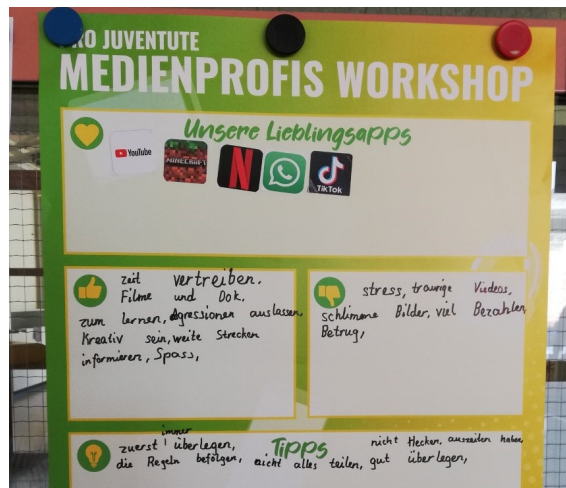 PRO JUVENTUTE
MEDIENPROFIS WORKSHOP
Unsere Lieblingsapps
YouTube
MINECRAFT
N
TikTok
zeit vertreiben.
Filme und Dok.
zum lernen, Agressionen auslassen,
Kreativ sein, weite Strecken
informieren, Spass,
stress, traurige Videos,
schlimme Bilder, viel Bezahlen,
Betrug,
Tipps
zuerst immer überlegen,
die Regeln befolgen, nicht alles teilen, gut überlegen,
nicht Hecken, auszeiten haben,